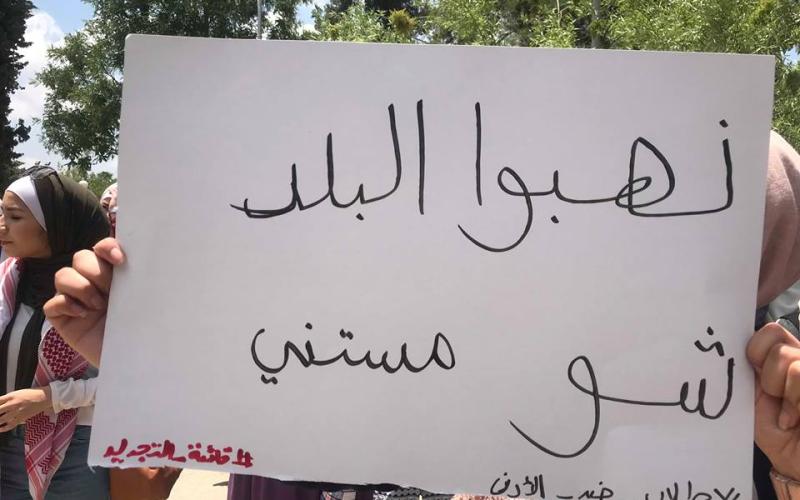 نهبوا البلد
شو مستني
#قائمة_التجديد
الأردن